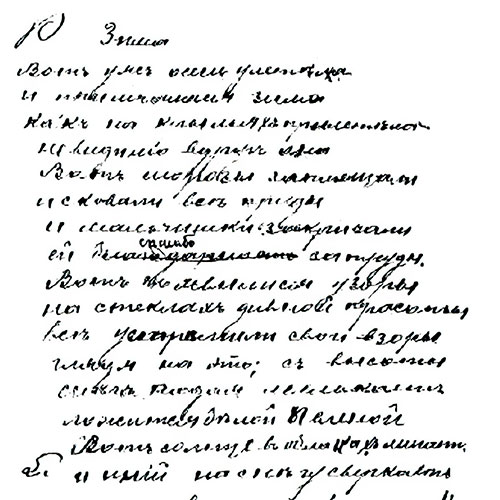 Зима
Вотъ ужъ осень улетѣла
и примчалася зима
Какъ на крыльяхъ прилетѣла
невидимо вдругъ она
Вотъ морозы затрещали
и сковали всѣ пруды
и мальчишки закричали
ей спасибо за труды.
Вотъ появилися узоры
на стеклахъ дивной красоты
всѣ устремили свои взоры
глядя на это; съ высоты
снѣгъ падаетъ мелькаетъ
ложится бѣлой пеленой
Вотъ солнце въ облакахъ мигаетъ
и иней на снѣгу сверкаетъ